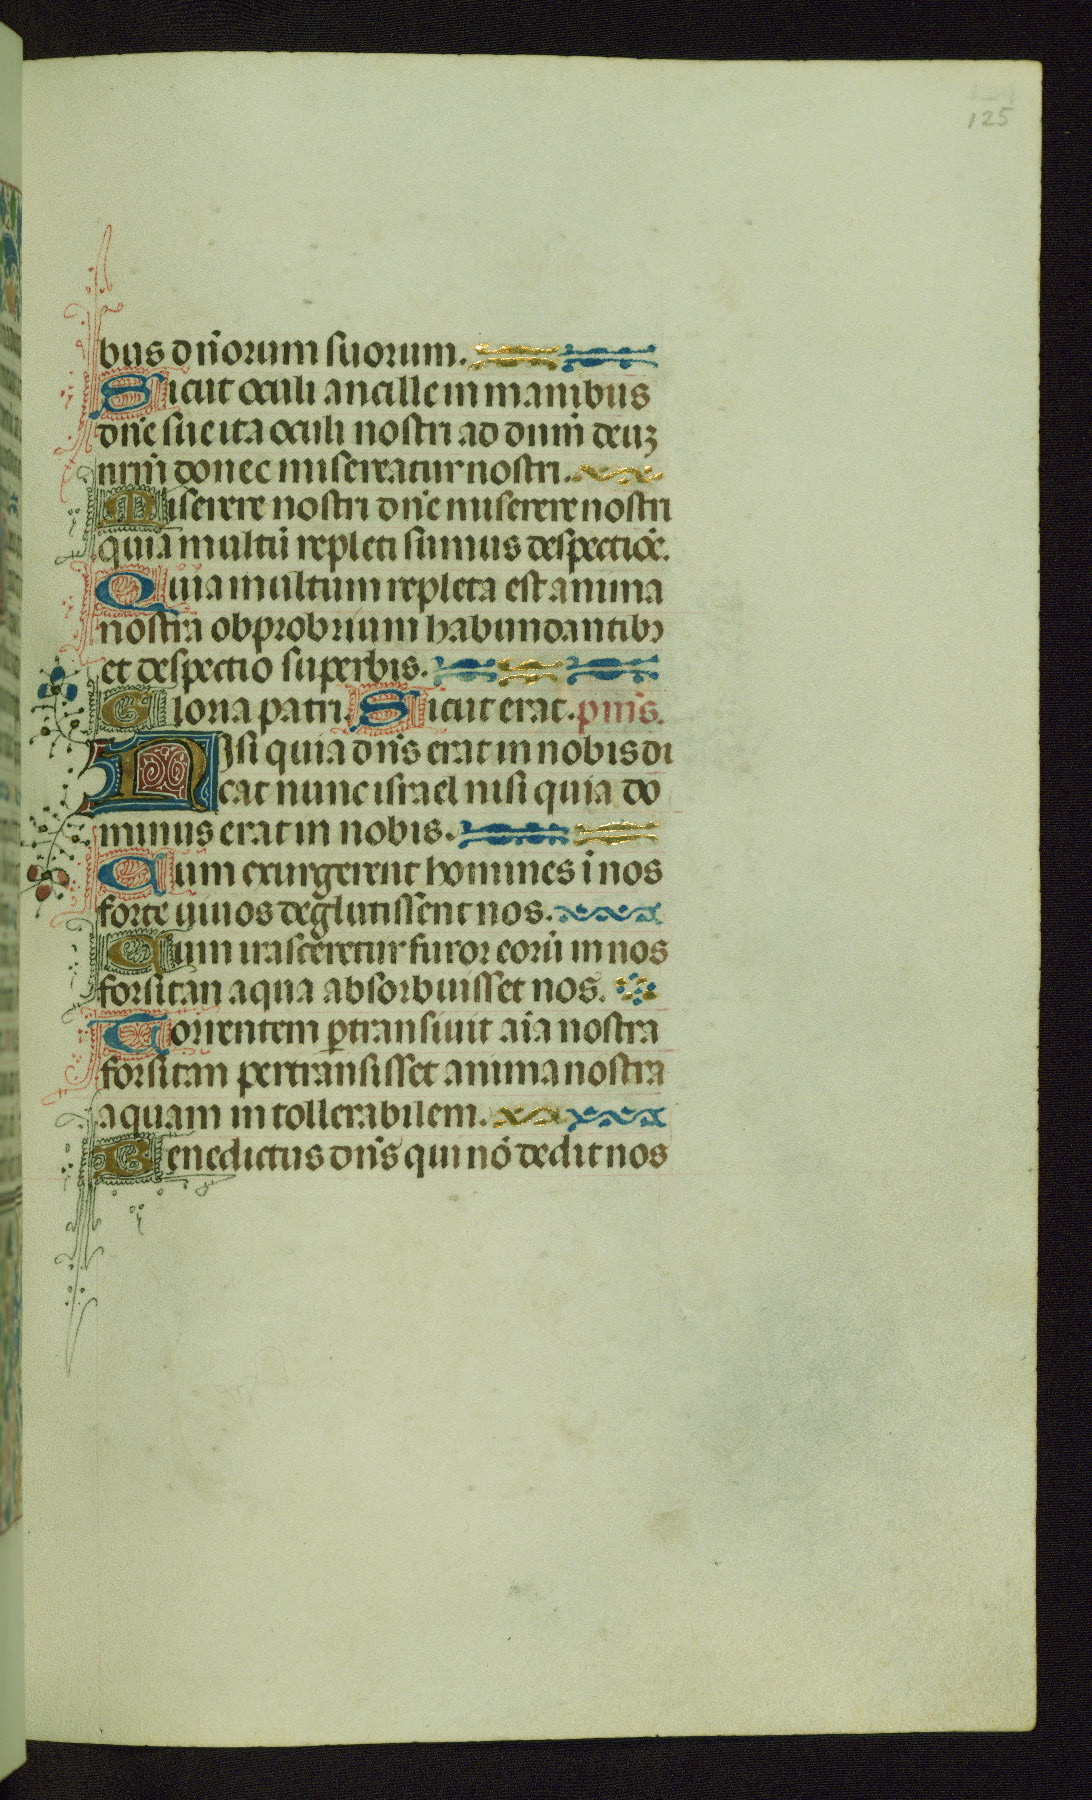 125
bus dn̄orum suorum.
Sicut oculi ancille in manibus
dn̄e sue ita oculi nostri ad dnum̄ deuꝫ
nrm̄ donec misereatur nostri.
Miserere nostri dn̄e miserere nostri
quia multū repleti sumus despectiōe.
Quia multum repleta est anima
nostra obprobrium habundantibꝫ
et despectio superbis.
Gloria patri. Sicut erat. pmūs.
Nisi quia dn̄s erat in nobis di
cat nunc israel nisi quia do
minus erat in nobis.
Cum exurgerent homines ī nos
forte vivos deglutissent nos.
Cum irasceretur furor eorū in nos
forsitan aqua absorbuisset nos.
Torrentem ꝑtransivit aīa nostra
forsitan pertransisset anima nostra
aquam in tollerabilem.
Benedictus dn̄s qui nō dedit nos